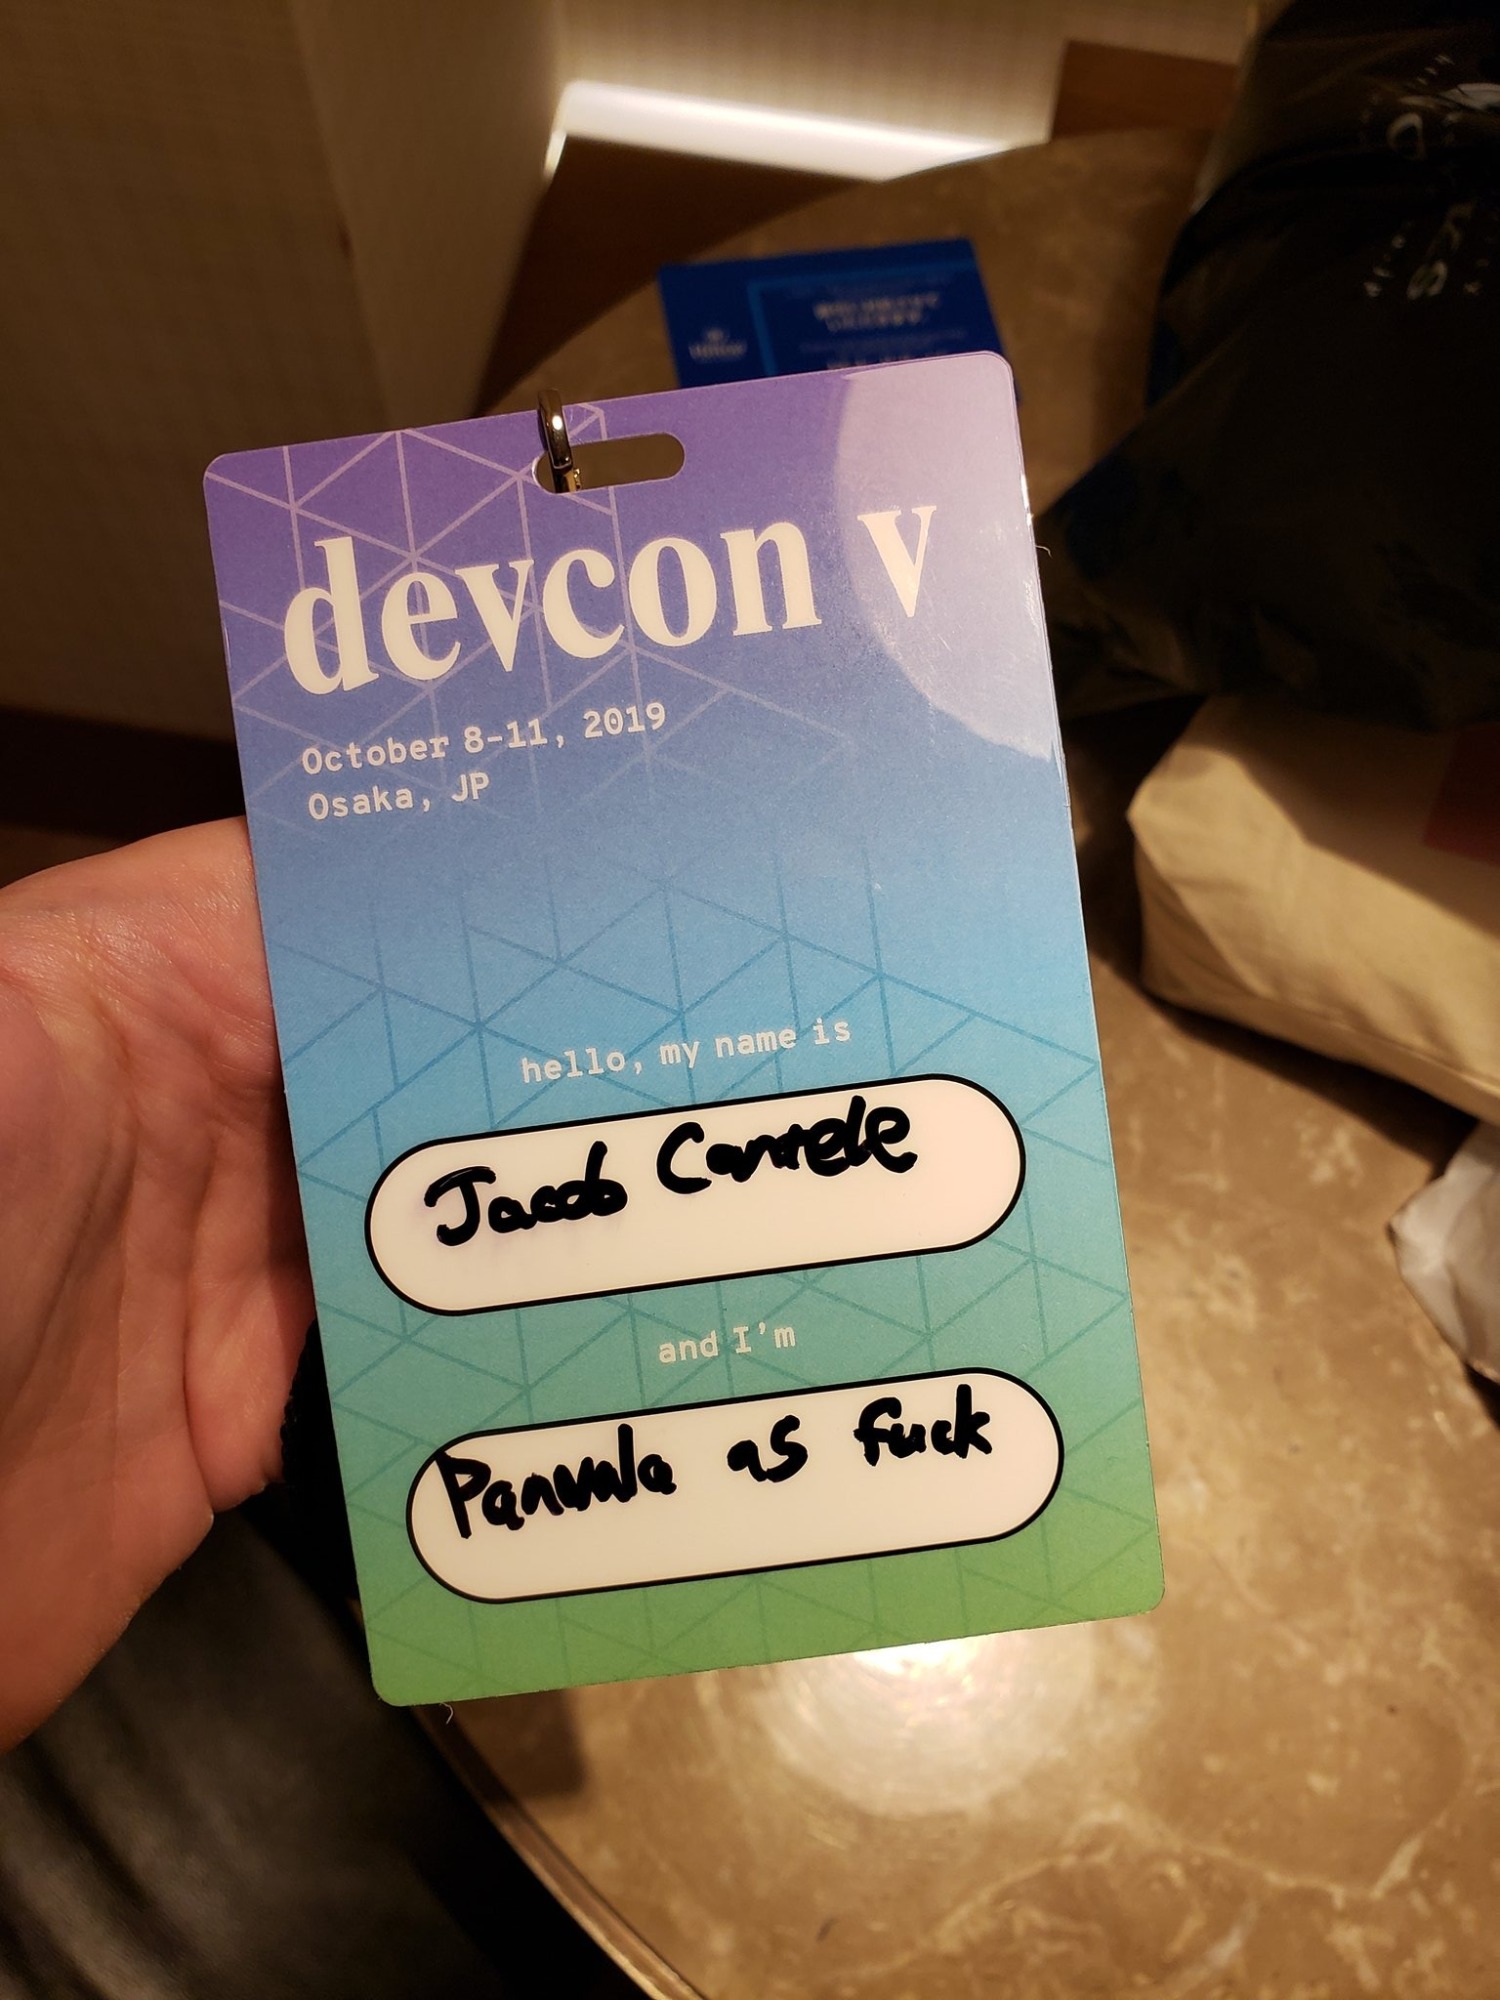 devcon v
October 8-11, 2019
Osaka, JP
hello, my name is
Jacob Cantele
and I'm
Panvala as fuck